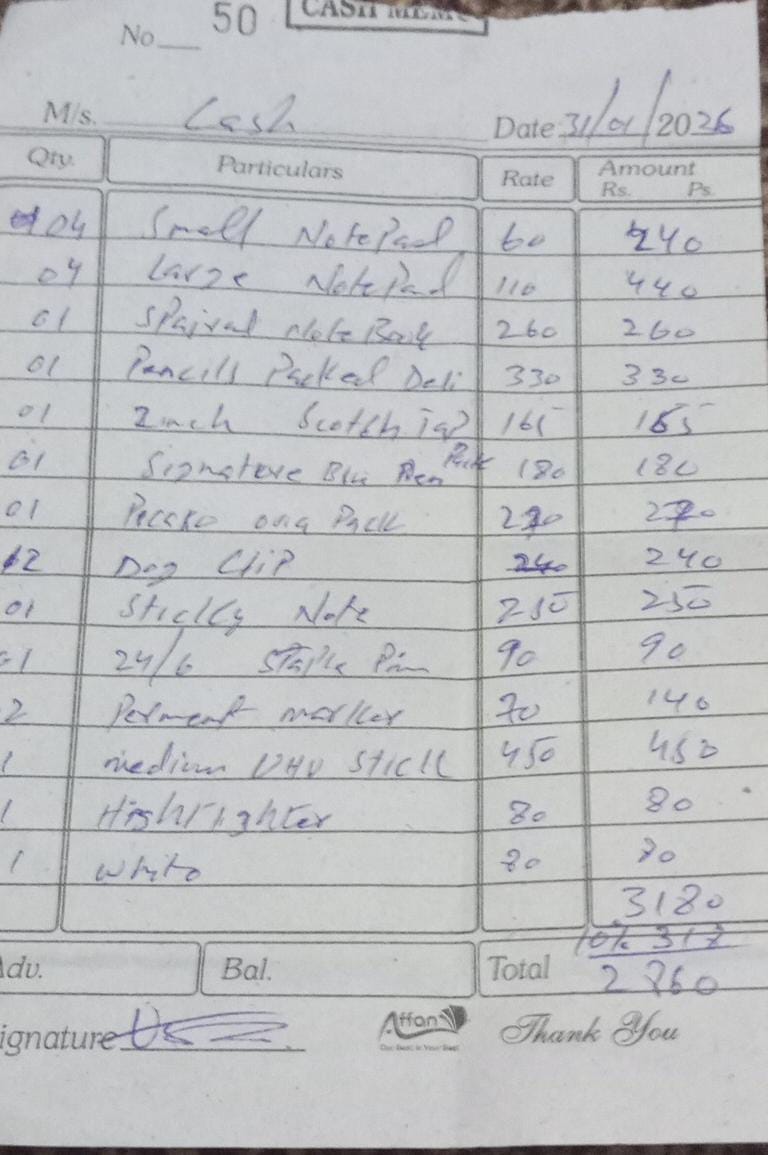 CASH MEMO
No 50
M/s. Cash Date 31/01/2026
Qty. Particulars Rate Amount
Rs. Ps.
04 Small NotePad 60 240
04 Large NotePad 110 440
01 SPairal NoteBook 260 260
01 Pencills Packed Deli 330 330
01 2inch Scotch Tap 165 165
01 Signature Blu Pen Pack 180 180
01 ona Pack 270 270
12 Dog Clip 240 240
01 Stickly Note 250 250
01 24/6 Staple Pin 90 90
2 Perment marker 70 140
1 medium UHU Stick 450 450
1 Highlighter 80 80
1 Whito
3180
10%
Adv. Bal. Total 2860
Signature
Affan
Our Best is Your Best
Thank You